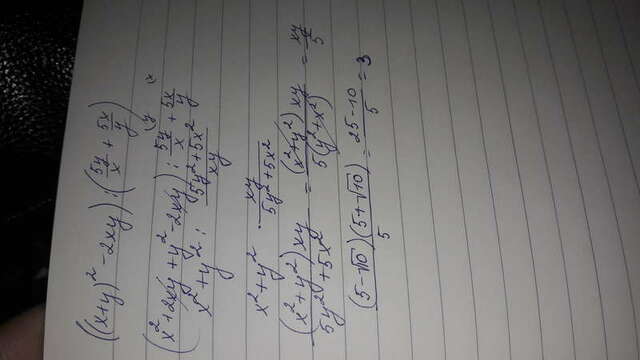 ((x+y)² - 2xy) : (5y/x + 5x/y)
(x² + 2xy + y² - 2xy) : 5y/x + 5x/y
x² + y² : (5y² + 5x²)/xy
x² + y² · xy/(5y² + 5x²)
(x² + y²) xy/(5y² + 5x²) = (x² + y²) xy/5(y² + x²) = xy/5
(5 - √10)(5 + √10)/5 = (25 - 10)/5 = 3